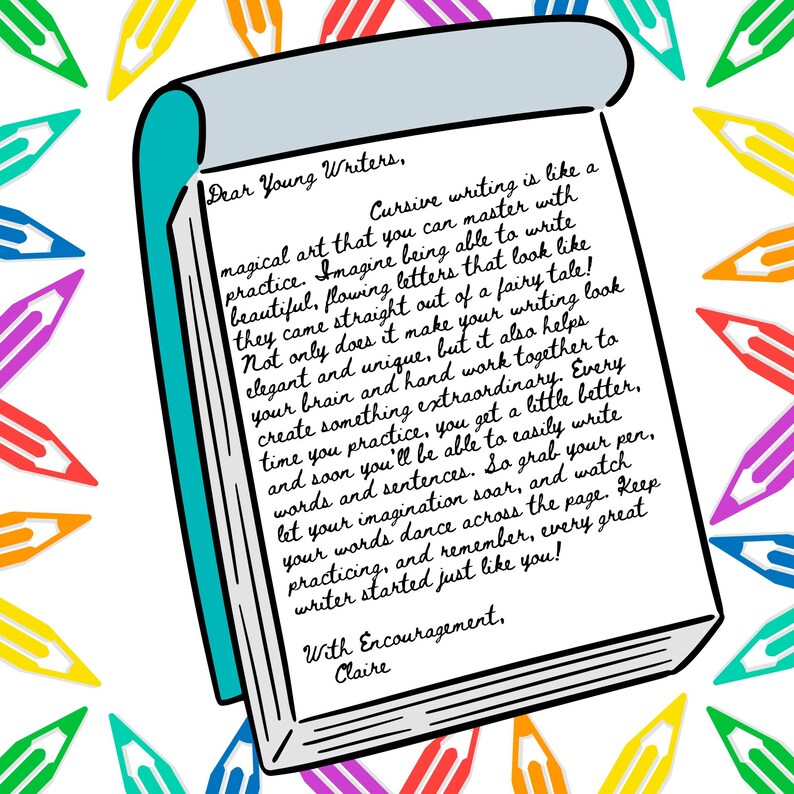 Dear Young Writers,
Cursive writing is like a
magical art that you can master with
practice. Imagine being able to write
beautiful, flowing letters that look like
they came straight out of a fairy tale!
Not only does it make your writing look
elegant and unique, but it also helps
your brain and hand work together to
create something extraordinary. Every
time you practice, you get a little better,
and soon you'll be able to easily write
words and sentences. So grab your pen,
let your imagination soar, and watch
your words dance across the page. Keep
practicing, and remember, every great
writer started just like you!
With Encouragement,
Claire